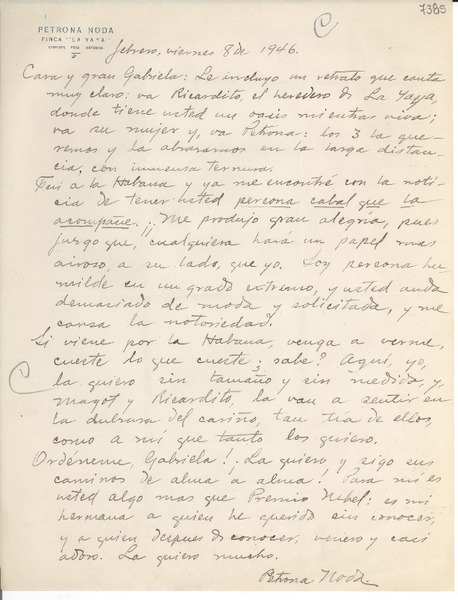 7385
PETRONA NODA
FINCA "LA YAYA"
febrero, viernes 8 de 1946.
Cara y gran Gabriela: Le incluyo un retrato que canta
muy claro: va Ricardito, el heredero de La Yaya,
donde tiene usted un oasis mientras viva;
va su mujer y, va Petrona: los 3 la que-
remos y la abrazamos en la larga distan-
cia, con inmensa ternura.
Fuí a la Habana y ya me encontré con la noti-
cia de tener usted persona cabal que la
acompañe. ¡Me produjo gran alegría, pues
juzgo que, cualquiera hará un papel mas
airoso, a su lado, que yo. Soy persona hu-
milde en un grado extremo, y usted anda
demasiado de moda y solicitada, y me
cansa la notoriedad.
Si viene por la Habana, venga a verme,
cueste lo que cueste, sabe? Aquí, yo,
la quiero sin tamaño y sin medida, y,
Magot y Ricardito, la van a sentir en
la dulzura del cariño, tan tía de ellos,
como a mí que tanto los quiero.
Ordéneme, Gabriela! ¡La quiero y sigo sus
caminos de alma a alma! Para mí es
usted algo mas que Premio Nobel: es mi
hermana a quien he querido sin conocer,
y a quien despues de conocer, venero y casi
adoro. La quiero mucho.
Petrona Noda.